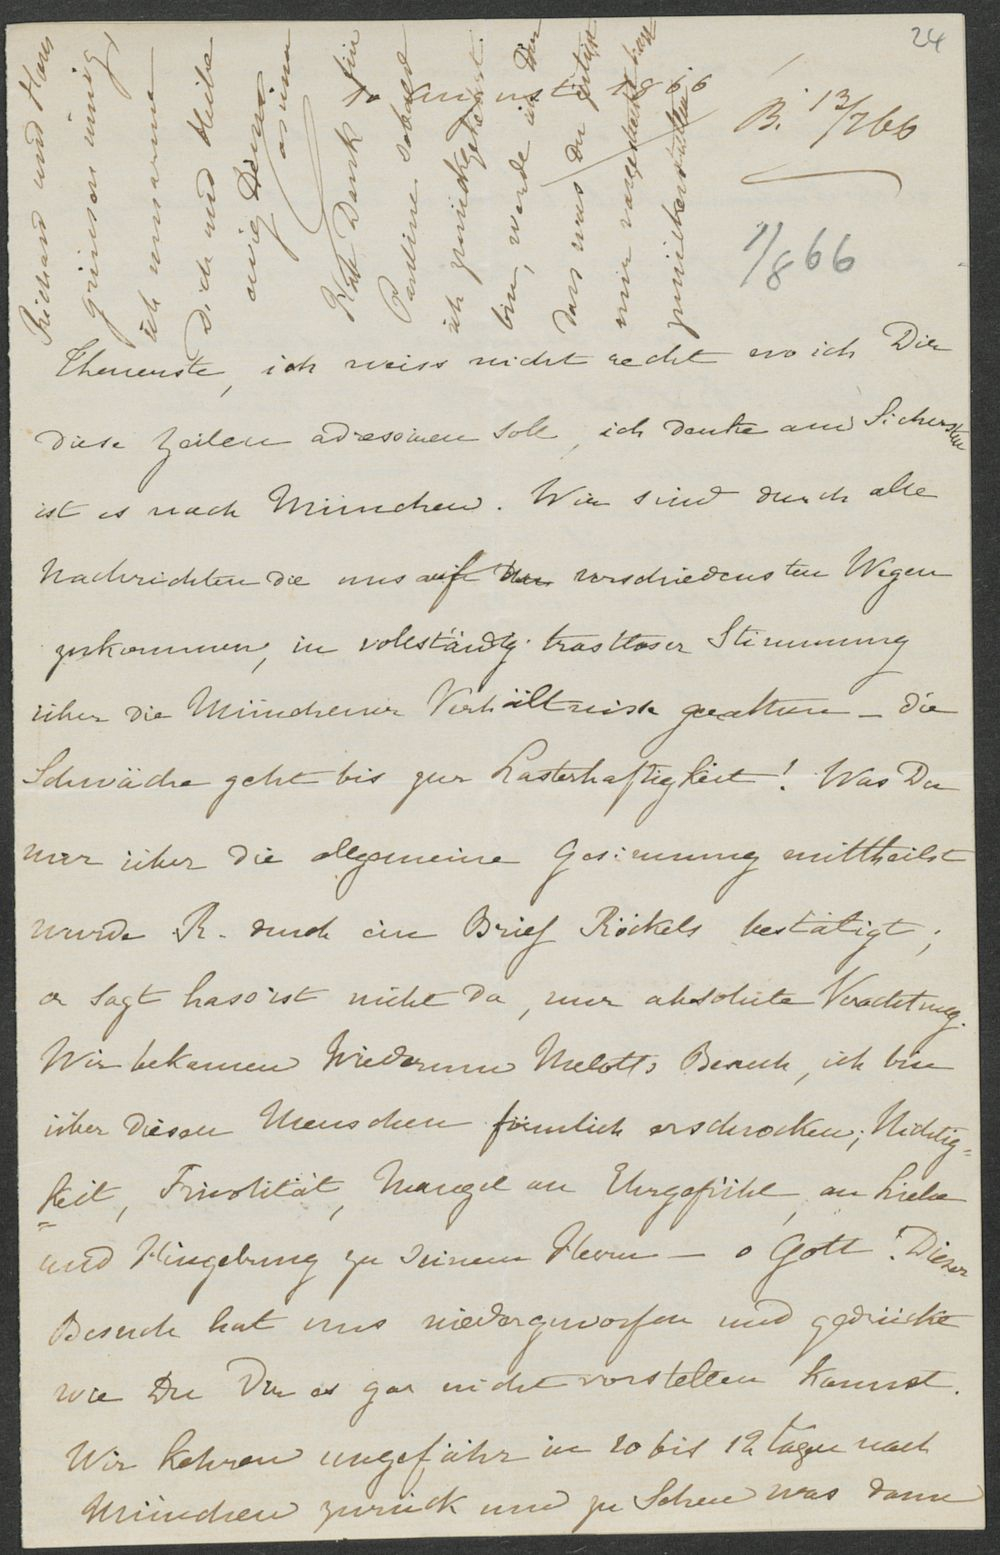 24
1ten August 1866
B. 13/7 66
1/8 66
Richard und Hans
grüssen innig,
ich umarme
Dich und bleibe
ewig Deine
Cosima
Habe Dank für
Pauline. sobald
ich zurückgekehrt
bin, werde ich Dir
dass was Du gütigst
mir vorgestreckt hast
zurückerstatten
Theuerste, ich weiss nicht recht wo ich Dir
diese Zeilen adressiren soll, ich denke am Sichersten
ist es nach München. Wir sind durch alle
Nachrichten die uns auf den verschiedensten Wegen
zukommen, in vollständig trostloser Stimmung
über die Münchener Verhältnisse gerathen — die
Schwäche geht bis zur Lasterhaftigkeit! Was Du
mir über die allgemeine Gesinnung mittheilst
wurde R. durch ein Brief Röckels bestätigt;
er sagt hass ist nicht da, nur absolute Verachtung.
Wir bekamen Wiederum Melotts Besuch, ich bin
über diesen Menschen förmlich erschrocken; Nichtig-
keit, Frivolität, Mangel an Ehrgefühl, an Liebe
und Hingebung zu seinem Herrn — o Gott! Dieser
Besuch hat uns niedergeworfen und gedrückt
wie Du Dir es gar nicht vorstellen kannst.
Wir kehren ungefähr in 10 bis 12 Tagen nach
München zurück um zu Sehen was dann